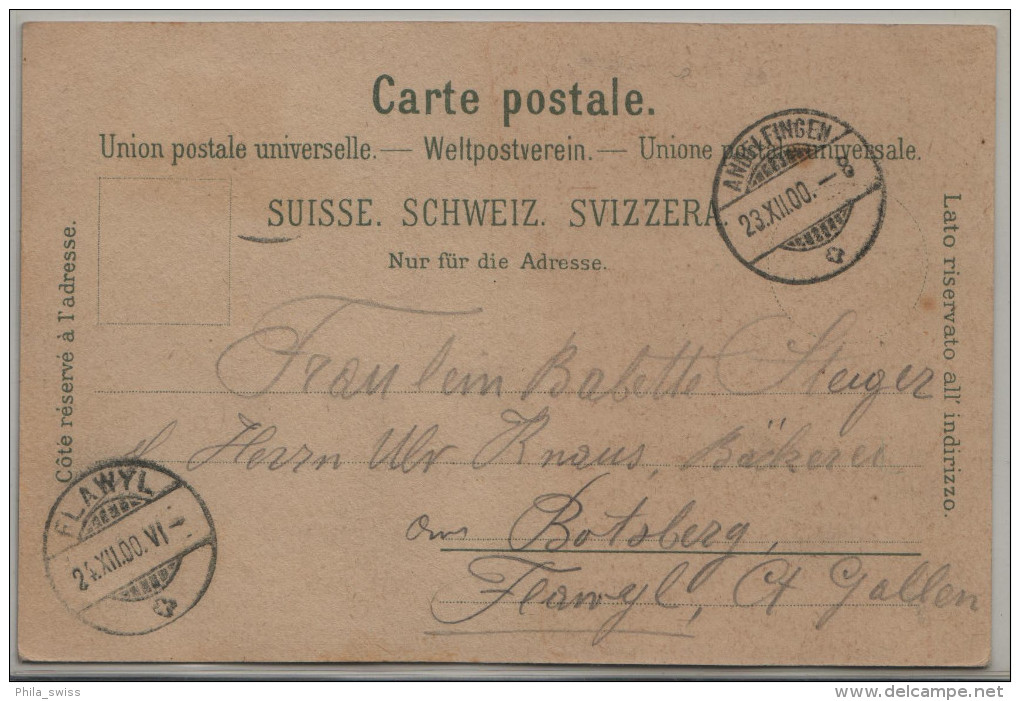 Carte postale.
Union postale universelle. — Weltpostverein. — Unione postale universale.
SUISSE. SCHWEIZ. SVIZZERA.
Nur für die Adresse.
Côté réservé à l'adresse.
Lato riservato all' indirizzo.
ANDELFINGEN
23.XII.00. — 8
Fraulein Babette Steiger
Herrn Ulr Knaus, Bäckerei
am Botsberg,
Flawyl, Ct Gallen
FLAWYL
24.XII.00. VI
Phila_swiss
www.delcampe.net